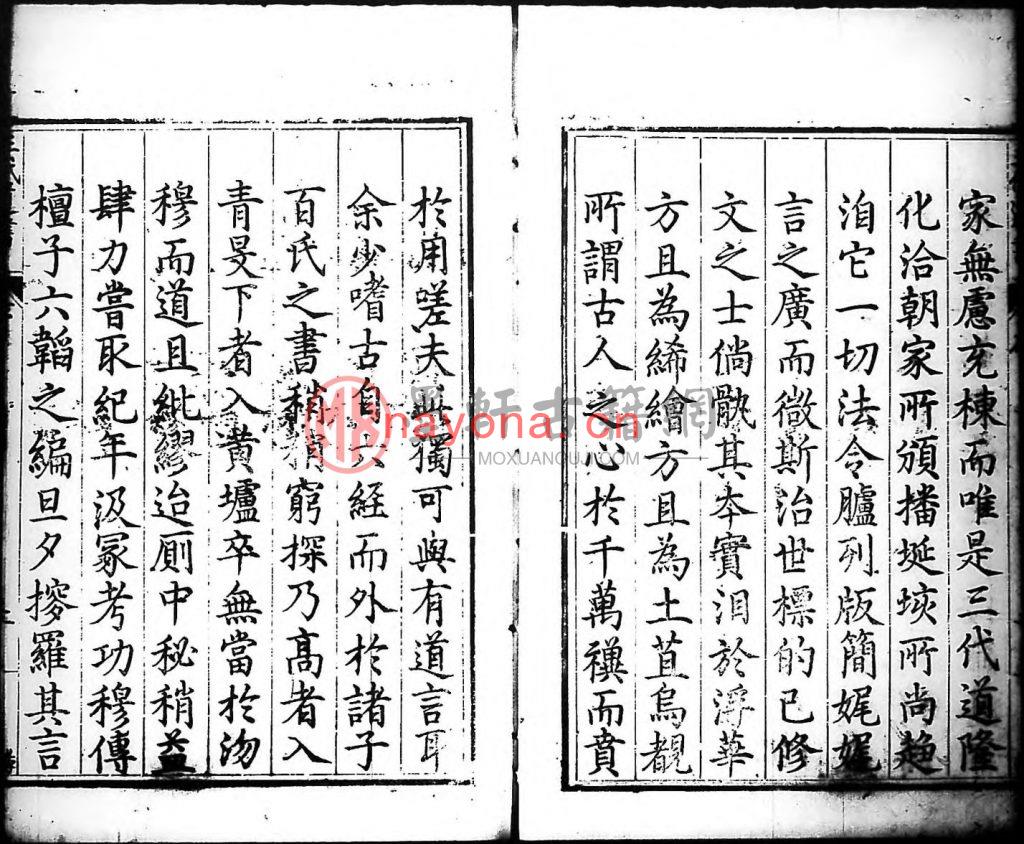 家無慮充棟而唯是三代道隆
化洽朝家所頒播埏垓所尚趍
洎它一切法令臚列版簡娓娓
言之廣而徵斯治世標的已修
文之士倘骩其本實汩於浮華
方且為絺繪方且為土苴烏覩
所謂古人之心於千萬禩而賁
於用嗟夫無獨可與有道言耳
余少嗜古自六經而外於諸子
百氏之書稍稍窮探乃高者入
青旻下者入黃壚卒無當於沕
穆而道且紕繆迨廁中秘稍益
肆力嘗取紀年汲冢考功穆傳
檀子六韜之編旦夕搜羅其言
墨軒古籍網
nayona.cn
MOXUANGUJI.COM